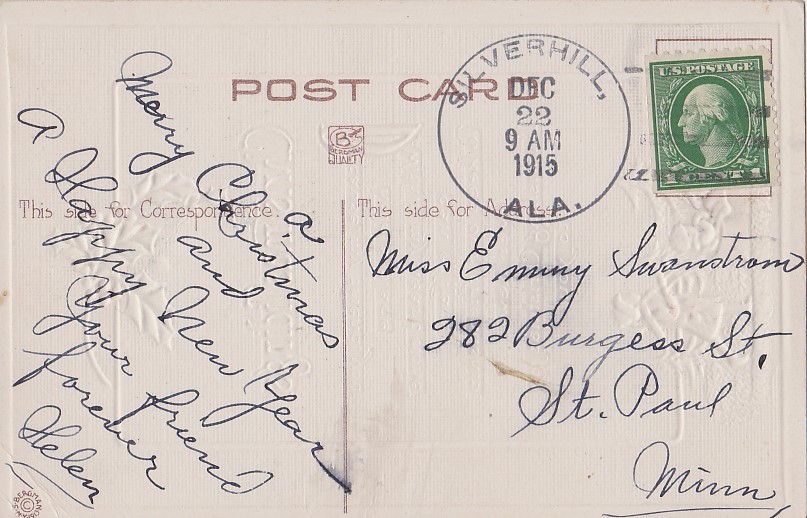 POST CARD
BERGMAN
QUALITY
SILVERHILL,
DEC
22
9 AM
1915
ALA.
U.S. POSTAGE
1 CENT 1
This side for Correspondence.
Merry
Christmas
a
and
a Happy New Year
Your friend
forever
Helen
This side for Address.
Miss Emmy Swanstrom
282 Burgess St.
St. Paul
Minn